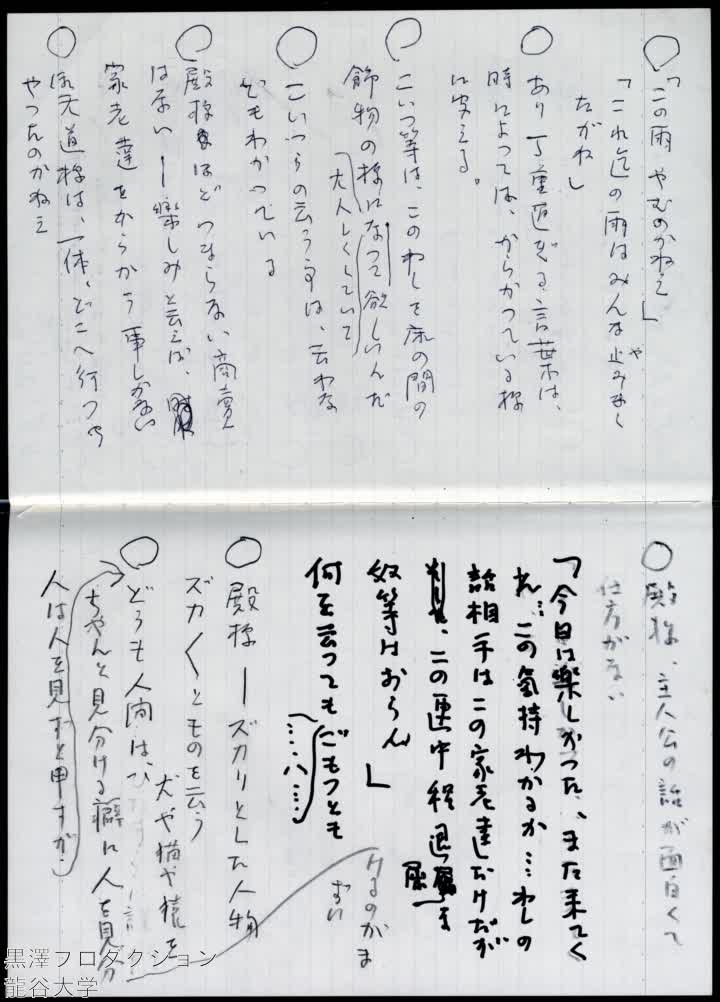 ○「この雨 やむのかねえ」
「これ迄の雨はみんな止みましたがね」
○あり丁重過ぎる言葉は、
時によっては、からかっている様
に安える。
○こいつ等は、このわしを床の間の
飾物の様になって欲しいんだ
大人しくしていて
○こいつらの云う事は、云わな
くてもわかっている
○殿様ほどつまらない商賣
はない―樂しみと云えば、
家老達をからかう事しかない
○は、一体、どこへ行っち
やったのかねえ
○殿様、主人公の話が面白くて
仕方がない
「今日は樂しかった、、また来てく
れ…この気持わかるか…わしの
話相手はこの家老達だけだが
、この連中程退屈な
奴等はおらん」
何を云っても ごもっとも
……ハ……
○殿様―ズカリとした人物
ズカ〱とものを云う
○どうも人間は、
犬や猫や猿を
ちゃんと見分ける癖に人を見分
けるのがま
ずい
人は人を見ずと申すが、
黒澤プロダクション
龍谷大学